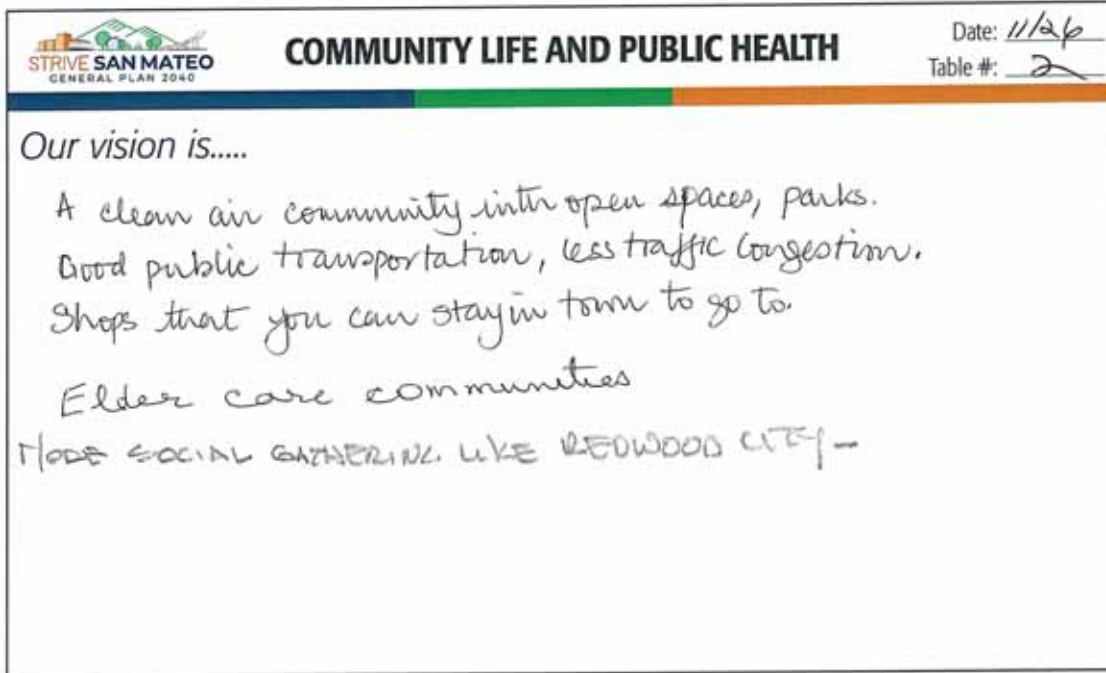 STRIVE SAN MATEO
GENERAL PLAN 2040
COMMUNITY LIFE AND PUBLIC HEALTH
Date: 11/26
Table #: 2
Our vision is.....
A clean air community with open spaces, parks.
Good public transportation, less traffic congestion.
Shops that you can stay in town to go to.
Elder care communities
MORE SOCIAL GATHERING LIKE REDWOOD CITY -